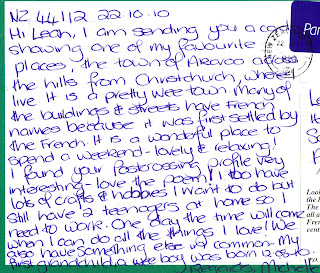 NZ 44112 22.10.10
Hi Leah, I am sending you a card
showing one of my favourite
places, the town of Akaroa across
the hills from Christchurch, where I
live. It is a pretty wee town. Many of
the buildings & streets have French
names because it was first settled by
the French. It is a wonderful place to
spend a weekend - lovely & relaxing!
I found your Postcrossing profile very
interesting - love the poem! I too have
lots of crafts & hobbies I want to do but
still have 2 teenagers at home so I
need to work. One day the time will come
when I can do all the things I love! We
also have something else in common - my
first grandchild, a wee boy was born
Regards, Michelle
Par
Look
the h
The
all a
Fren
cent